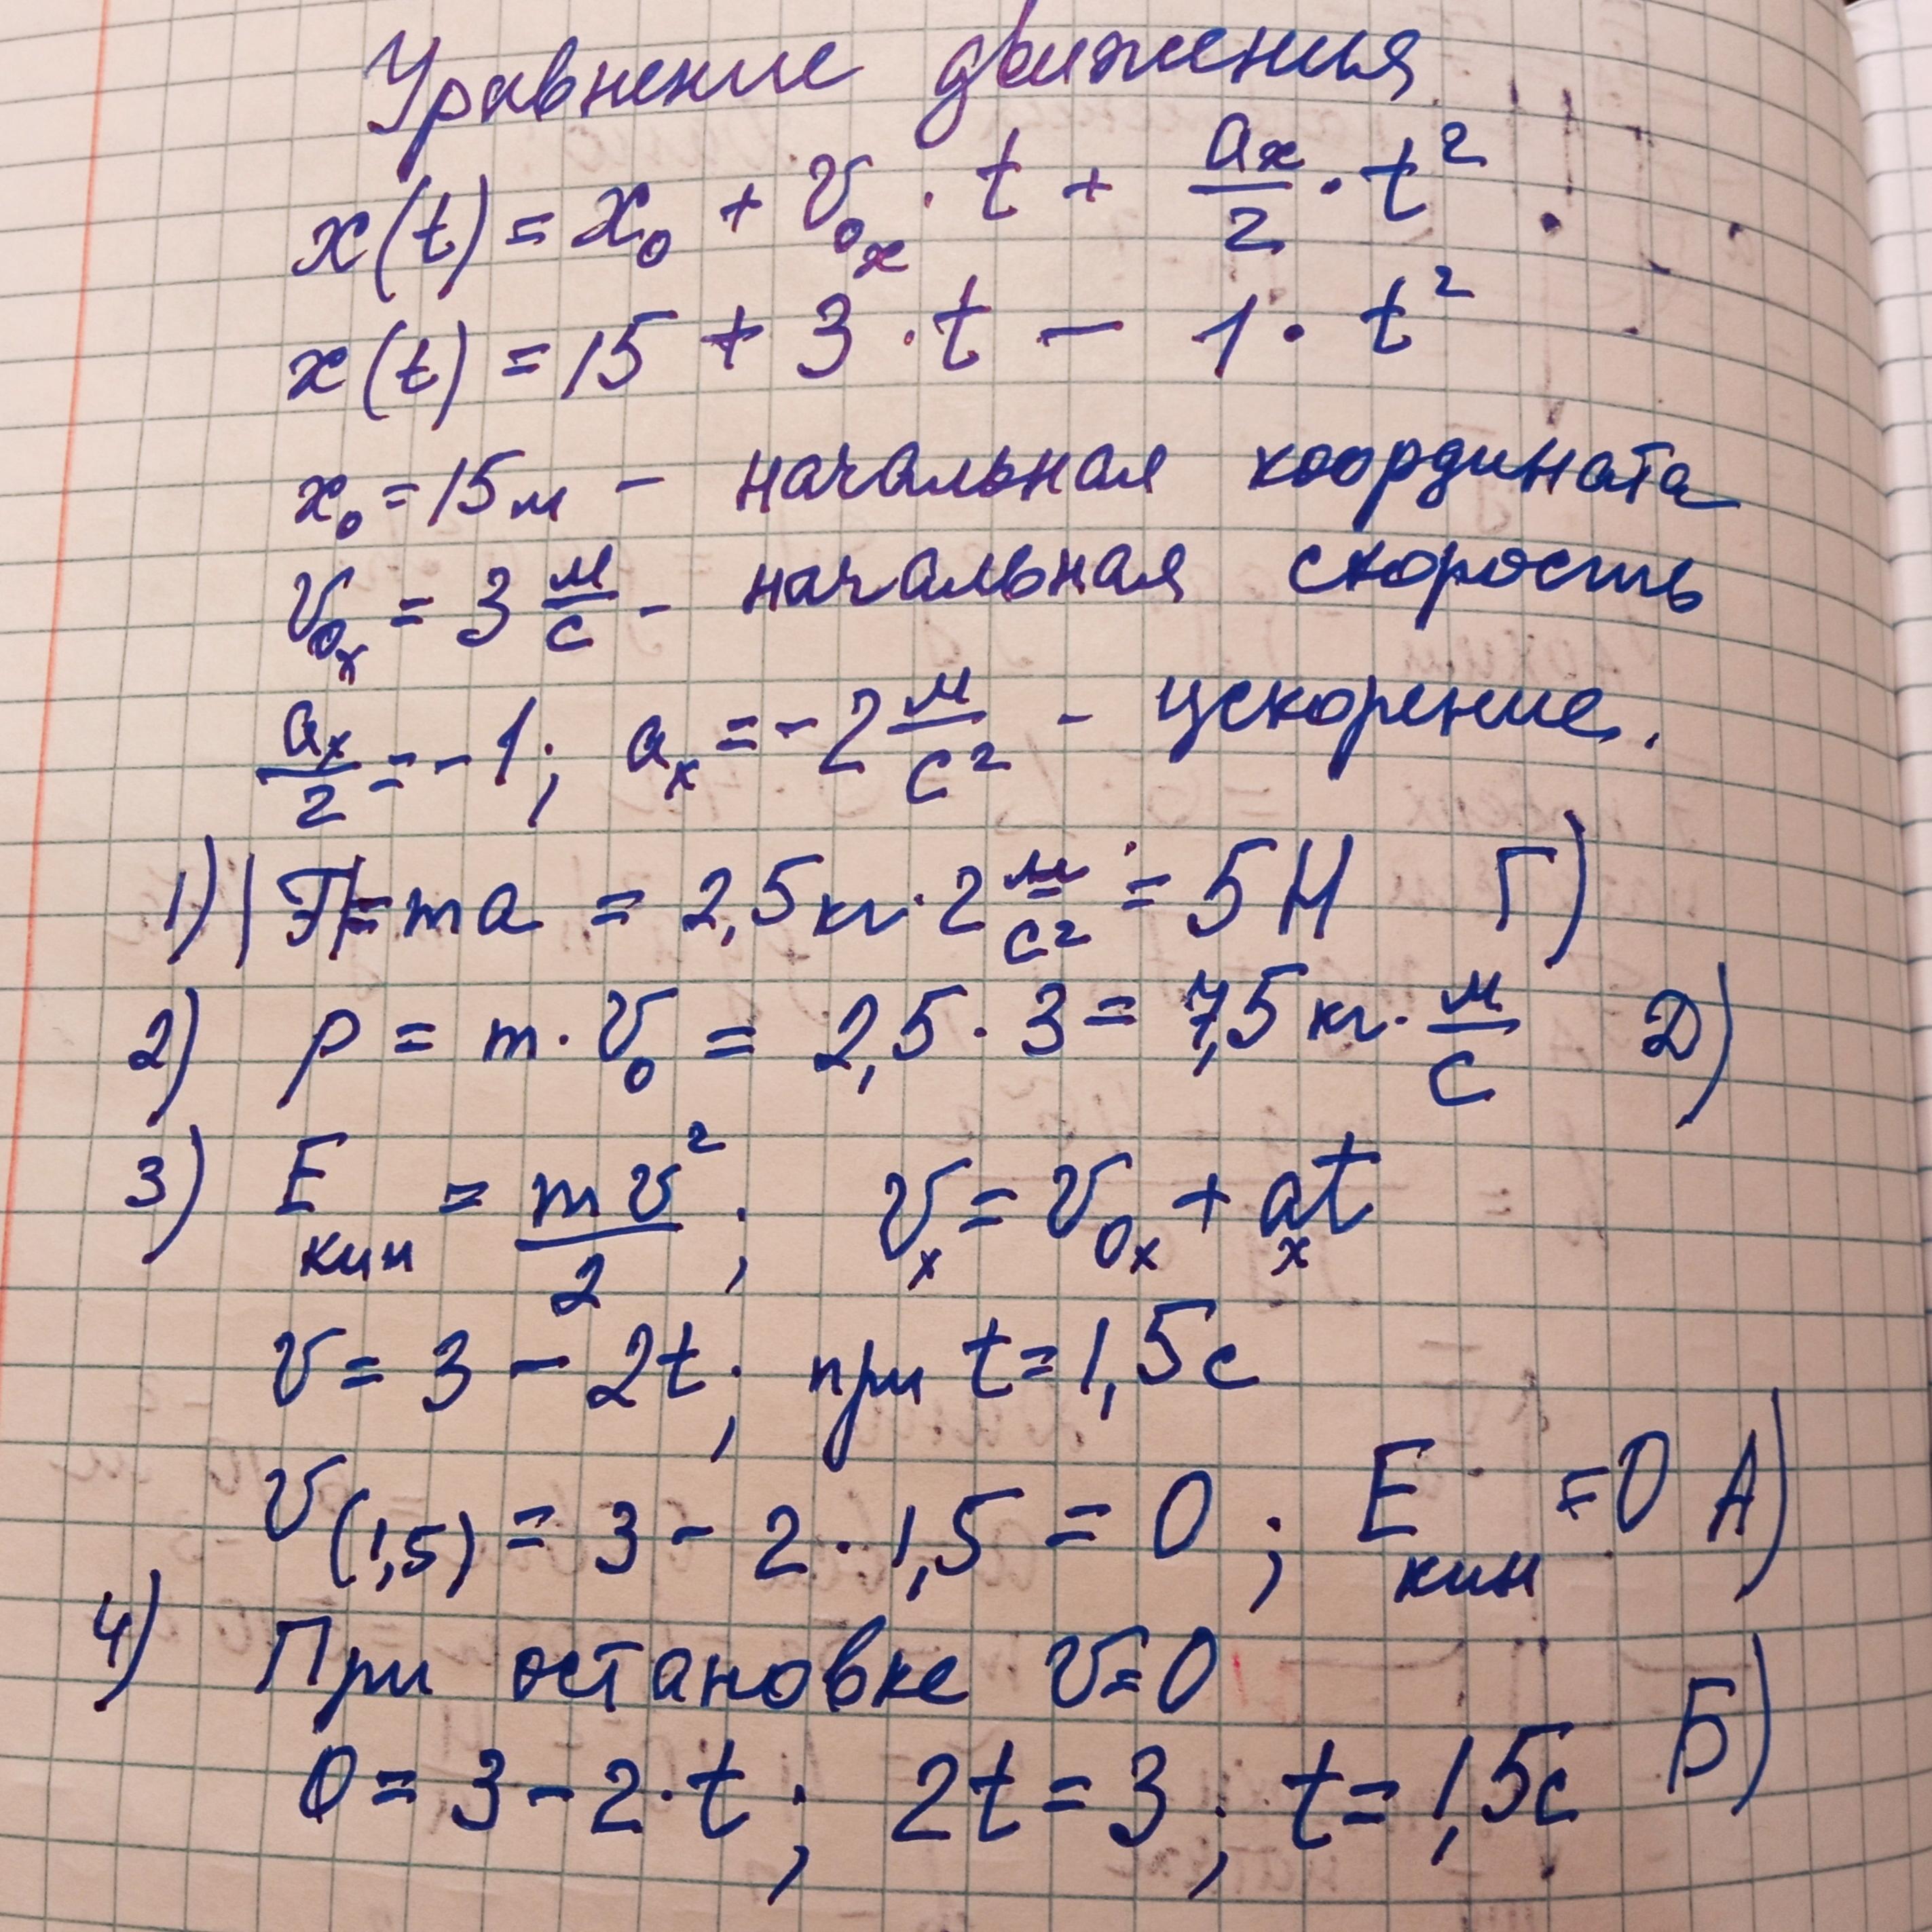 Уравнение движения
x(t) = x₀ + v₀ₓ · t + aₓ/2 · t²
x(t) = 15 + 3 · t − 1 · t²
x₀ = 15м − начальная координата
v₀ₓ = 3 м/с − начальная скорость
aₓ/2 = −1; aₓ = −2 м/с² − ускорение.
1) |F| = ma = 2,5кг · 2 м/с² = 5 Н Г)
2) p = m · v₀ = 2,5 · 3 = 7,5 кг · м/с Д)
3) Eкин = mv²/2; vₓ = v₀ₓ + aₓt
v = 3 − 2t; при t = 1,5с
v(1,5) = 3 − 2 · 1,5 = 0; Eкин = 0 А)
4) При остановке v = 0
0 = 3 − 2 · t; 2t = 3; t = 1,5с Б)